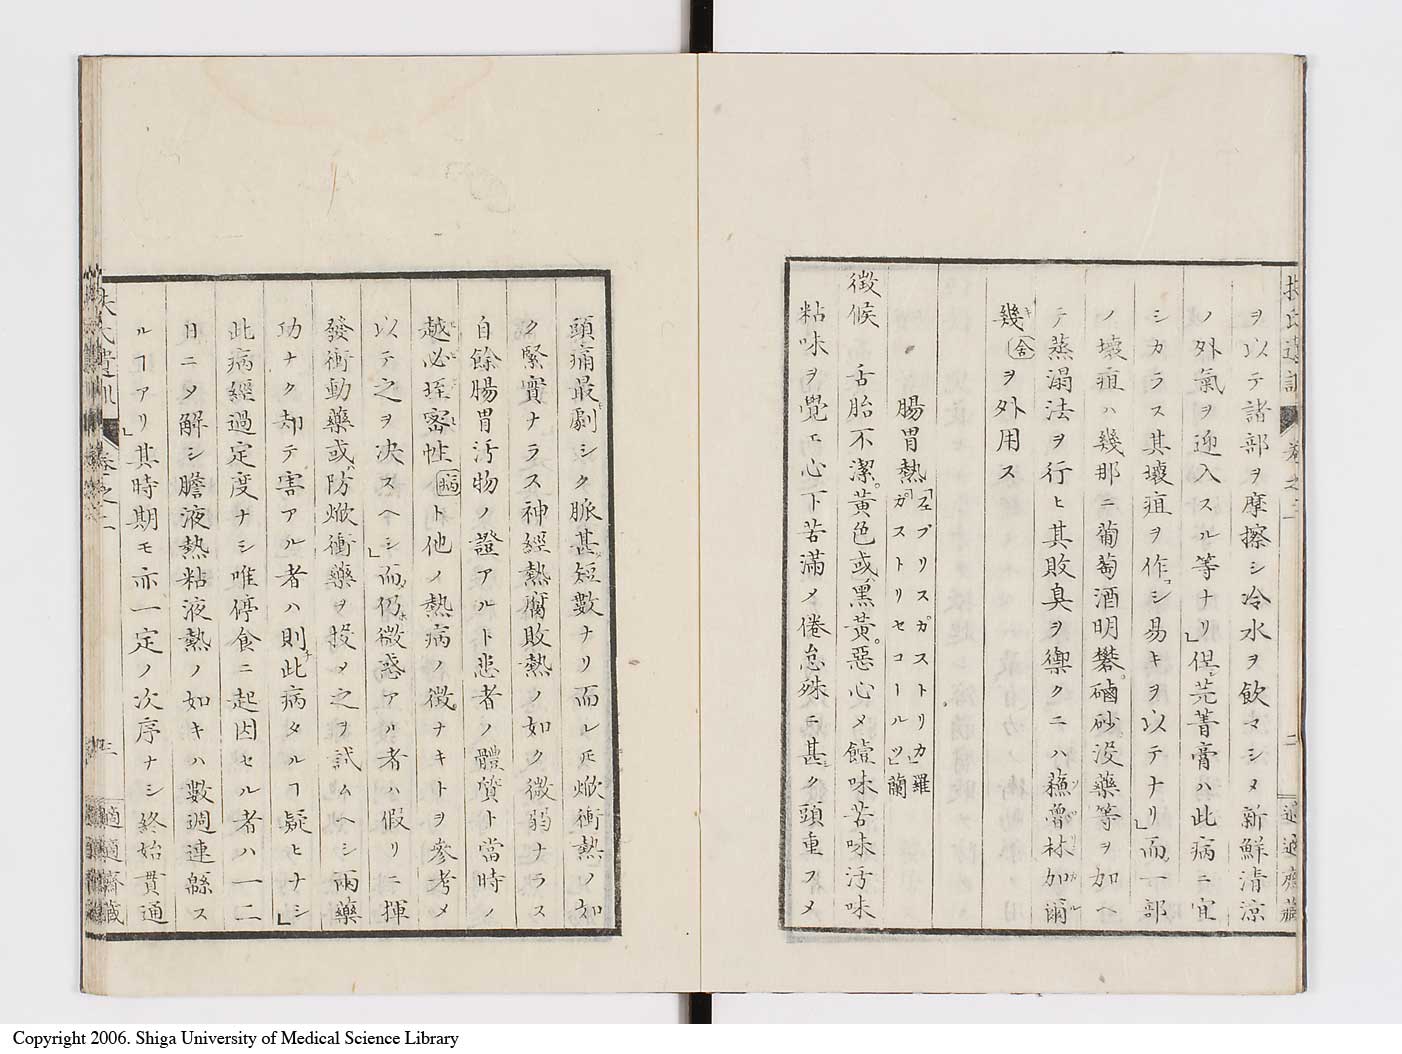 扶氏遺訓 卷之三 二 適適齋藏
ヲ以テ諸部ヲ摩擦シ冷水ヲ飲マシメ新鮮清涼
ノ外氣ヲ迎入スル等ナリ」但芫菁膏ハ此病ニ宜
シカラス其壞疽ヲ作シ易キヲ以テナリ」而一部
ノ壞疽ハ幾那ニ葡萄酒明礬磠砂没藥等ヲ加ヘ
テ蒸溻法ヲ行ヒ其敗臭ヲ禦クニハ蘓魯林加爾
幾舎ヲ外用ス
腸胃熱「ヱブリスガストリカ」羅
「ガストリセコールツ」蘭
徴候 舌胎不潔黄色或黒黄惡心メ饐味苦味汚味
粘味ヲ覺エ心下苦滿メ倦怠殊ニ甚ク頭重フメ
頭痛最劇シク脈甚短數ナリ而ルモ焮衝熱ノ如
ク緊實ナラス神經熱腐敗熱ノ如ク微弱ナラス
自餘腸胃汚物ノ證アルト患者ノ體質ト當時ノ
越必垤密性病ト他ノ熱病ノ徴ナキトヲ參考メ
以テ之ヲ决スヘシ」而仍微惑アル者ハ假リニ揮
發衝動藥或防焮衝藥ヲ投メ之ヲ試ムヘシ兩藥
功ナク却テ害アル者ハ則此病タルヿ疑ヒナシ」
此病經過定度ナシ唯停食ニ起因セル者ハ一二
日ニメ解シ膽液熱粘液熱ノ如キハ數週連緜ス
ルヿアリ」其時期モ亦一定ノ次序ナシ終始貫通
扶氏遺訓 卷之三 三 適適齋藏
Copyright 2006. Shiga University of Medical Science Library